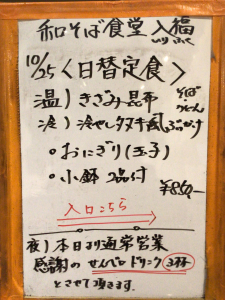 和そば食堂 入福
いり ふく
10/25 〈日替定食〉
温) きざみ昆布 そば・うどん
冷) 冷やしタヌキ風ぶっかけ
・おにぎり(玉子)
・小鉢 2品付
¥850,-
入口こちら
夜) 本日より通常営業
感謝の せんべロ ドリンク 3杯
とさせて頂きます。